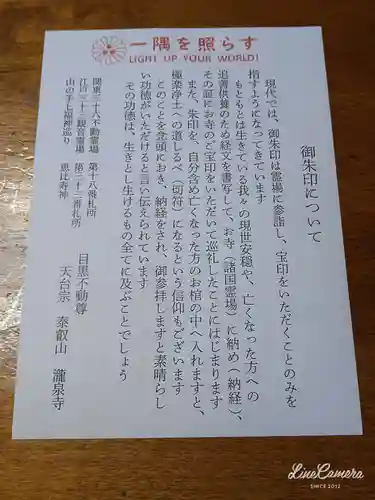 一隅を照らす
LIGHT UP YOUR WORLD!
御朱印について
現代では、御朱印は霊場に参詣し、宝印をいただくことのみを
指すようになってきています
もともとは生きている我々の現世安穏や、亡くなった方への
追善供養のため経文を書写して、お寺(諸国霊場)に納め(納経)、
その証にお寺のご宝印をいただいて巡礼したことにはじまります
また、朱印を、自分含め亡くなった方のお棺の中へ入れますと、
極楽浄土への道しるべ(切符)になるという信仰もございます
このことを念頭におき、納経をされ、御参拝しますと素晴らし
い功徳がいただけると言い伝えられています
その功徳は、生きとし生けるもの全てに及ぶことでしょう
関東三十六不動霊場 第十八番札所
江戸三十三観音霊場 第三十三番札所
山の手七福神巡り 恵比寿神
目黒不動尊
天台宗 泰叡山 瀧泉寺
LineCamera
SINCE 2012